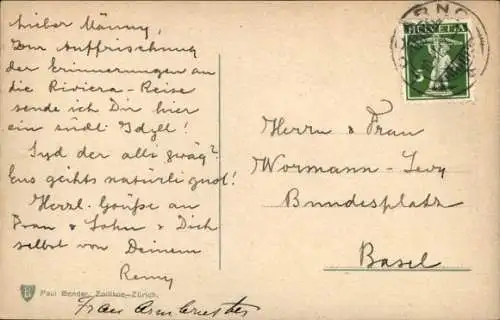 Lieber Männy,
Zur Auffrischung
der Erinnerungen an
die Riviera-Reise
sende ich Dir hier
ein südl. Idyll!
Syd der alli zwäg?
Eus gehts natürli guet!
Herzl. Grüße an
Frau & Sohn & Dich
selbst von Deinem
Remy
HELVETIA
5
Herrn & Frau
Wormann-Levy
Bundesplatz
Basel
Paul Bender, Zollikon-Zürich.
Frau